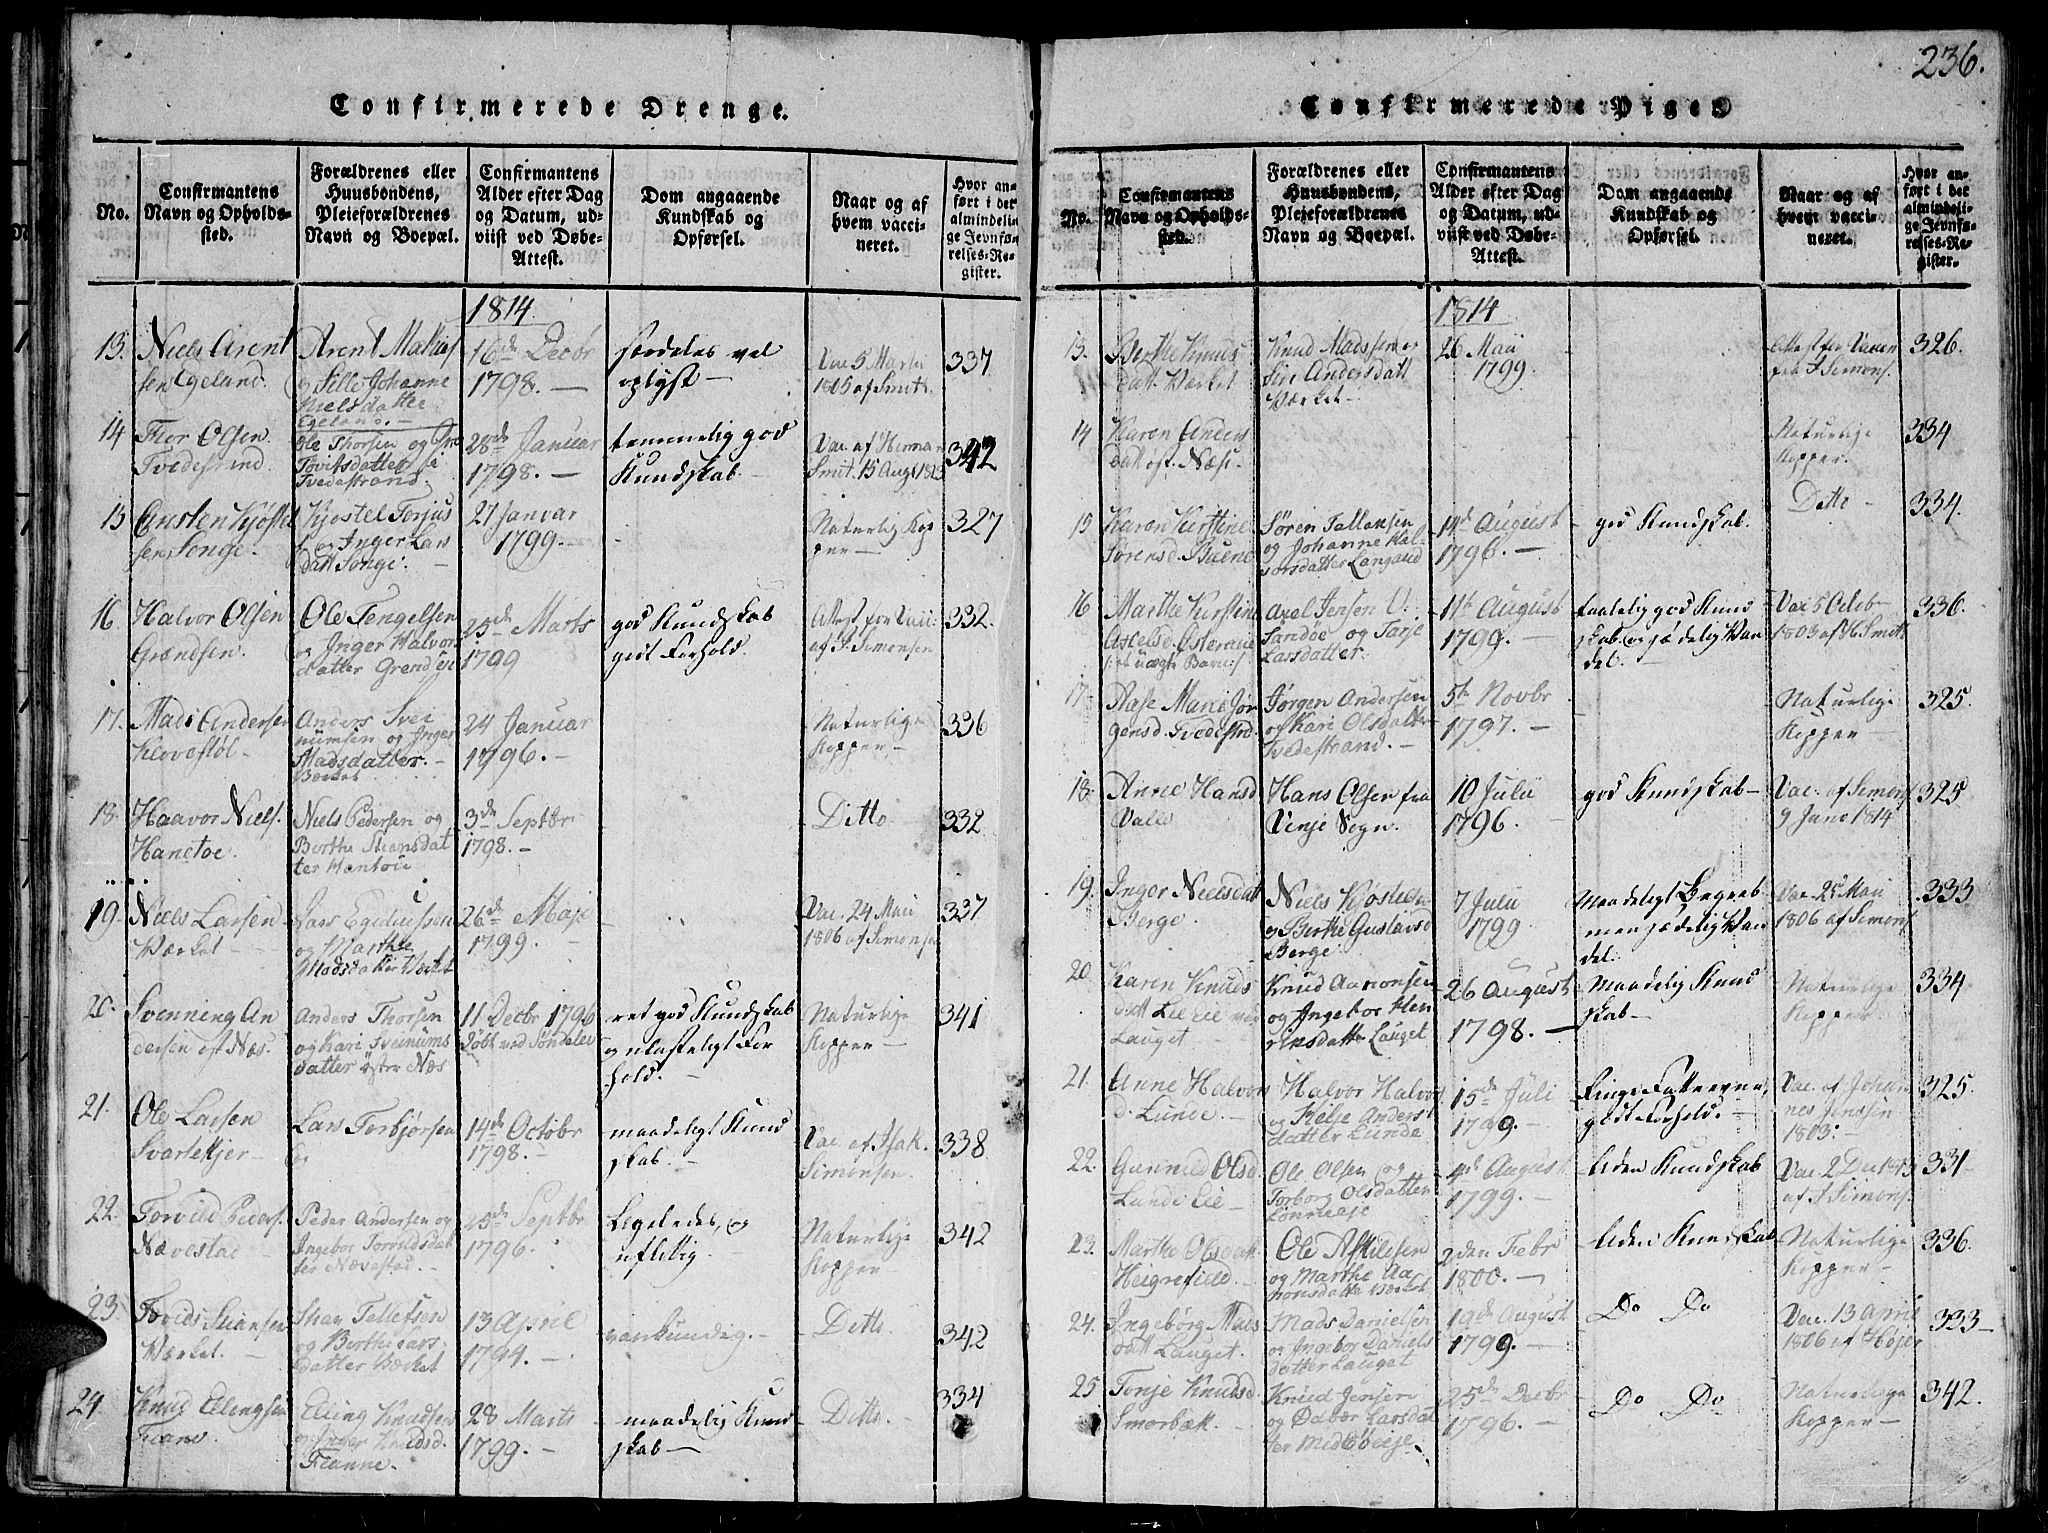 236.
Confirmerede Drenge.
No.
Confirmantens
Navn og Opholds-
sted.
Forældrenes eller
Huusbondens,
Plejeforældrenes
Navn og Boepæl.
Confirmantens
Alder efter Dag
og Datum, ud-
viist ved Døbe-
Attest.
Dom angaaende
Kundskab og
Opførsel.
Naar og af
hvem vacci-
neret.
Hvor an-
ført i det
almindeli-
ge Jevnfø-
relses-Re-
gister.
1814.
13.
Niels Arent
sen Egeland.
Arent Mathis
og Sille Johanne
Nielsdatter
Egeland.-
16de Decbr
1798.-
særdeles vel
oplyst-
Vac 5 Martii
1805 af Smith
337
14
Thor Olsen
Tvedestrand.
Ole Thorsen og
Tovitsdatter i
Tvedestrand.
28de Januar
1798.-
temmelig god
Kundskab-
Vac. af Herman
Smit. 15 Aug 1813
342
15
Carsten Kjøstel
sen Songe.
Kjøstel Torjus
og Inger Lars
datt Songe.
27 Januar
1799.-
Naturlig Kop
per-
327
16
Halvor Olsen
Grændsen.
Ole Tengelsen
og Inger Halvor
datter Grendsen
25de Marts
1799
god Kundskab
godt Forhold.
Attest for Vacc:
af I. Simonsen
332.
17.
Mads Andersen
Klovestøl-
Anders Svei
numsen og Inger
Madsdatter.-
Værket
24 Januar
1796.-
Naturlige
Kopper-
336
18.
Haavor Niels.
Hanetoe.
Niels Pedersen og
Berthe Steansdat
ter Hantoe
3de Septbr
1798.-
Ditto
332
19.
Niels Larsen
Værket-
Lars Egidiussen
og Marthe
Madsdatter Værket
26de Maje
1799.-
Vac. 24 Maii
1806 af Simonsen
337
20.
Svenning An
dersen øst Næs.
Anders Thorsen
og Kari Sveinums
datter øster Næs
11 Decbr 1796
Døbt ved Søndelev
ret god Kundskab
og ulasteligt For
hold.-
Naturlige
Kopper-
341
21.
Ole Larsen
Svartekjer-
Lars Torbjørsen
og
14de Octobr
1798.-
maadeligt Kund
skab.-
Vac. af Isak.
Simonsen.
338
22.
Torvild Peders.
Nævestad-
Peder Andersen og
Ingebor Torvildsdat
ter Nævestad.-
25de Septbr
1796.
Ligeledes, og
uflittig.
Naturlige
Kopper-
342
23.
Tovids Steansen
Værket.-
Stian Tellefsen
og Berthe Lars
datter Værket
13 April
1794.-
vankundig.-
Ditto
342
24
Knud Elingsen
Fiane.
Eling Knudsen
og Inger Knudsd.
Fianne.
28 Marts
1799.-
maadelig Kund
skab-
Ditto.
334
Confirmerede Piger.
No.
Confirmantens
Navn og Opholds-
sted.
Forældrenes eller
Huusbondens,
Plejeforældrenes
Navn og Boepæl.
Confirmantens
Alder efter Dag
og Datum, ud-
viist ved Døbe-
Attest.
Dom angaaende
Kundskab og
Opførsel.
Naar og af
hvem vacci-
neret.
Hvor an-
ført i det
almindeli-
ge Jevnfø-
relses-Re-
gister.
1814
13.
Berthe Knuds
datt. Værket
Knud Madssen og
Siri Andersdatt
Værket-
26 Maii
1799.
Attest for Vaccn
fra I Simons.
326.
14
Karen Anders
datt øst. Næse.
Naturlige
Kopper.
334
15
Karen Kirstine
Sørensd. Buene
Søren Tallaksen
og Johanne Hal-
vorsdatter Langaard
14de August
1796.-
god Kundskab.
Ditto-
334.
16
Marthe Kirstine
Axelsd. Østeraae
/:et uægte Barn:/
Axel Jensen V:
Sandøe og Tarje
Larsdatter.
11te August
1799.-
taalelig god Kund
skab og sædelig Van
del.-
Vac 5 Octob-
1803 af H. Smit
336.
17.
Aase Marie Jør
gensd. Tvedestrd.
Jørgen Andersen
og Kari Olsdatter
Tvedestrand.-
5te Novbr
1797.-
Naturlige
Kopper-
325.
18.
Anne Hansd
Valle
Hans Olsen fra
Vinje Sogn.
10 Julii
1796.
god Kundskab-
Vac. af Simons
9 Janr 1814
325
19.
Inger Nielsdatt
Berge-
Niels Kjøstelsen
og Berthe Gustavsd
Berge.
7 Julii
1799
Maadeligt Begreb
men sædelig Van
del.
Vac. 25 Maii
1806 af Simons
333
20.
Karen Knuds
datt Lie Eie ved
Lauget-
Knud Aanonsen
og Ingebor Hen
richsdatter Lauget
26 August
1798.-
Maadelig Kund
skab-
Naturlige
Kopper.
334
21.
Anne Halvors
d. Lunde.-
Halvor Halvors
og Helje Anders
datter Lunde
15de Juli
1799.
Ringe Fatteevne,
godt Forhold.-
Vac. af Johan
nes Jenssen
1803:-
325
22.
Gunnild Olsd.
Lunde Eie-
Ole Olsen og
Torborg Olsdatter
Lønneeje
4de August
1799.-
Uden Kundskab
Vac. 2 Dec 1813
af I Simons.
331-
23.
Marthe Olsdatt.
Heigrefield.-
Ole Aslaksen
og Marthe Aa
nonsdatter Værket
2den Febr
1800.-
Uden Kundskab
Naturlige
Kopper-
336.
24.
Ingebørg Mads
datt Lauget.
Mads Danielsen
og Ingebor Daniels
datter Lauget
19de August
1799.-
Do Do
Vac. 13 April
1806 af Højer
333-
25
Tonje Knudsd.
Smorbæk.-
Knud Jensen
og Dabor Larsdat
ter Midtbøeje.
25de Decbr
1796.-
Do Do
Naturlige
Kopper-
342.